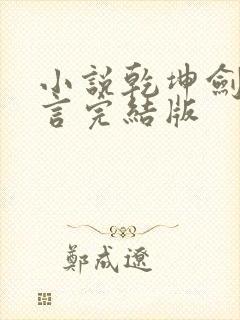 小說乾坤劍
言完結版
鄭成遼